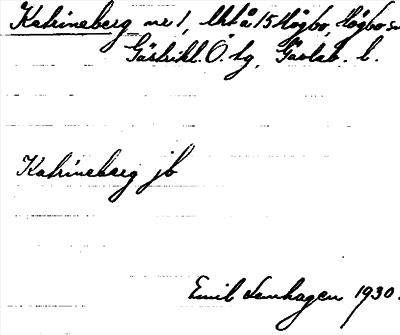 Katrineberg nr 1, Mtl å 15 Högbo, Högbo sn
Gästrikl. Ö. tg, Gävleb. l.
Katrineberg jb
Emil Lenhagen 1930.